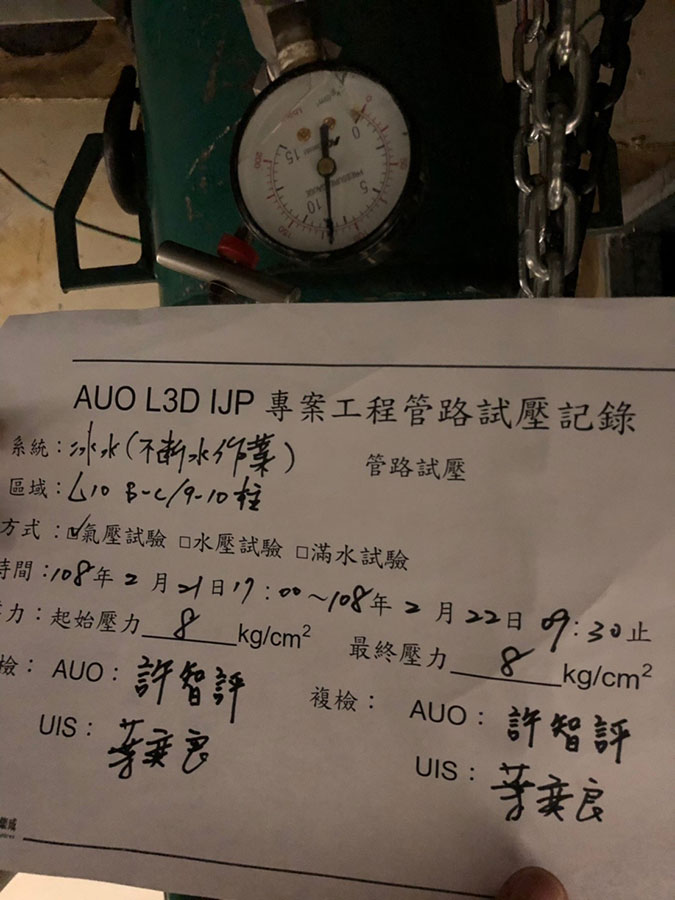 0
5
10
15
PRESSURE GAUGE
AUO L3D IJP 專案工程管路試壓記錄
系統：冰水(不斷水作業) 管路試壓
區域：L10 B-C/9-10柱
方式：☑氣壓試驗 □水壓試驗 □滿水試驗
時間：108年 2 月 21日 17：00～108年 2 月 22日 09：30止
力：起始壓力 8 kg/cm² 最終壓力 8 kg/cm²
檢： AUO：許智評 複檢： AUO：許智評
UIS： UIS：